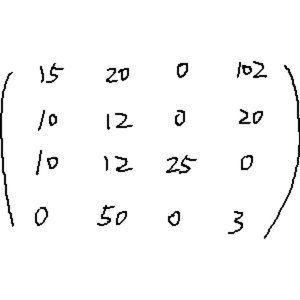 15 20 0 102
10 12 0 20
10 12 25 0
0 50 0 3